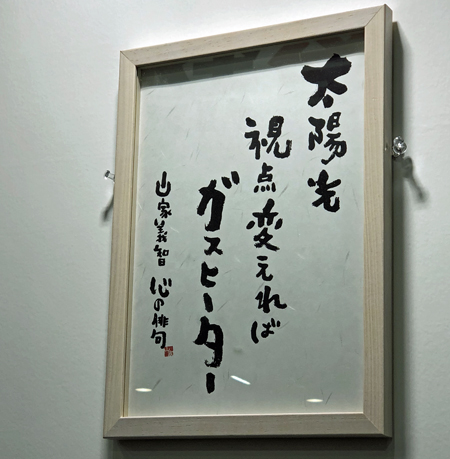 太陽光
視点変えれば
ガスヒーター
山家義智 心の俳句